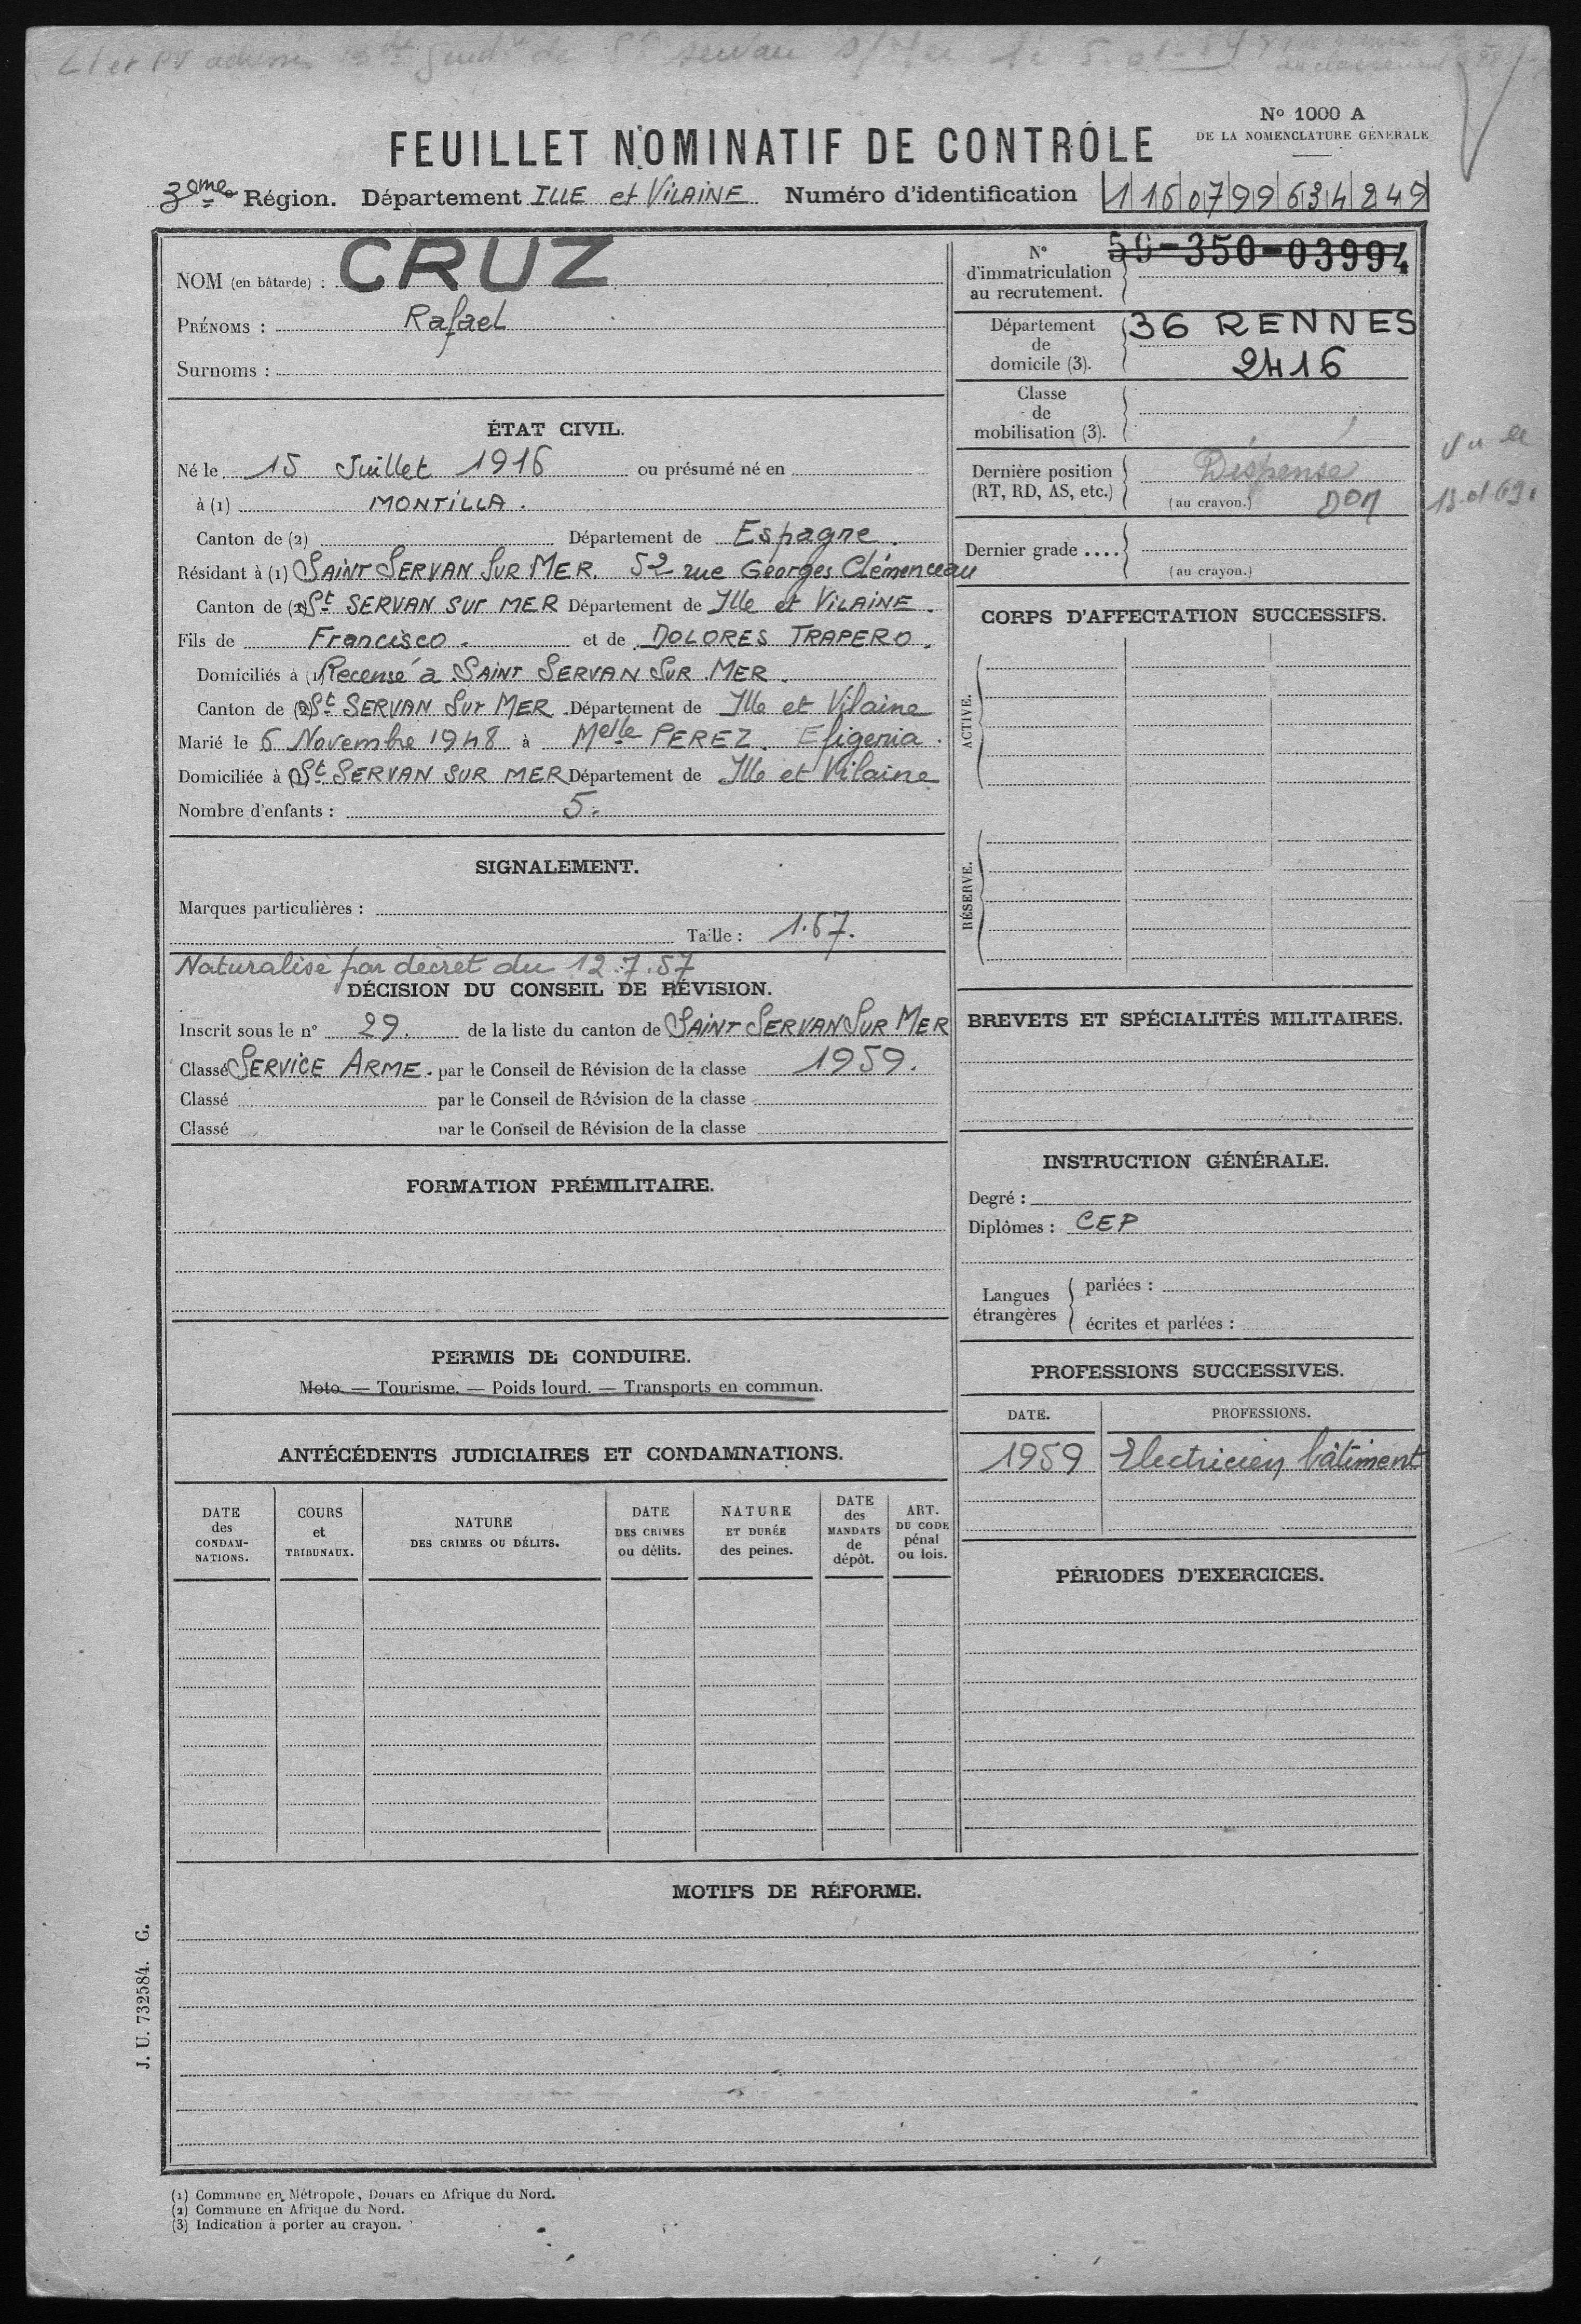 LI et PV adressés de St Servan s/Mer le
No 1000 A
DE LA NOMENCLATURE GÉNÉRALE
FEUILLET NOMINATIF DE CONTRÔLE
3ème Région. Département ILLE et VILAINE Numéro d'identification 1 16 07 99 634 249
NOM (en bâtarde) : CRUZ
PRÉNOMS : Rafael
Surnoms :
ÉTAT CIVIL.
Né le 15 Juillet 1916 ou présumé né en
à (1) MONTILLA.
Canton de (2) Département de Espagne.
Résidant à (1) SAINT SERVAN SUR MER. 52 rue Georges Clémenceau
Canton de (2) St SERVAN SUR MER Département de Ille et VILAINE.
Fils de Francisco. et de DOLORES TRAPERO.
Domiciliés à (1) Recensé à SAINT SERVAN SUR MER.
Canton de (2) St SERVAN Sur MER. Département de Ille et Vilaine
Marié le 6 Novembre 1948 à Melle PEREZ. Efigenia.
Domiciliée à (1) St SERVAN SUR MER Département de Ille et Vilaine
Nombre d'enfants : 5.
SIGNALEMENT.
Marques particulières :
Taille : 1.67.
Naturalisé par décret du 12.7.57
DÉCISION DU CONSEIL DE RÉVISION.
Inscrit sous le n° 29. de la liste du canton de SAINT SERVAN SUR MER
Classé SERVICE ARME. par le Conseil de Révision de la classe 1959.
Classé par le Conseil de Révision de la classe
Classé par le Conseil de Révision de la classe
FORMATION PRÉMILITAIRE.
PERMIS DE CONDUIRE.
Moto. — Tourisme. — Poids lourd. — Transports en commun.
ANTÉCÉDENTS JUDICIAIRES ET CONDAMNATIONS.
DATE des CONDAM-NATIONS.
COURS et TRIBUNAUX.
NATURE DES CRIMES OU DÉLITS.
DATE DES CRIMES ou délits.
NATURE ET DURÉE des peines.
DATE des MANDATS de dépôt.
ART. DU CODE pénal ou lois.
N° d'immatriculation au recrutement. 59-350-03994
Département de domicile (3). 36 RENNES
2416
Classe de mobilisation (3).
Dernière position (RT, RD, AS, etc.) Dispensé
(au crayon.) DOM
Vu le
13.01.69
Dernier grade ....
(au crayon.)
CORPS D'AFFECTATION SUCCESSIFS.
ACTIVE.
RÉSERVE.
BREVETS ET SPÉCIALITÉS MILITAIRES.
INSTRUCTION GÉNÉRALE.
Degré :
Diplômes : CEP
Langues étrangères
parlées :
écrites et parlées :
PROFESSIONS SUCCESSIVES.
DATE. PROFESSIONS.
1959 Electricien bâtiment
PÉRIODES D'EXERCICES.
MOTIFS DE RÉFORME.
J. U. 732584. G.
(1) Commune en Métropole, Douars en Afrique du Nord.
(2) Commune en Afrique du Nord.
(3) Indication à porter au crayon.